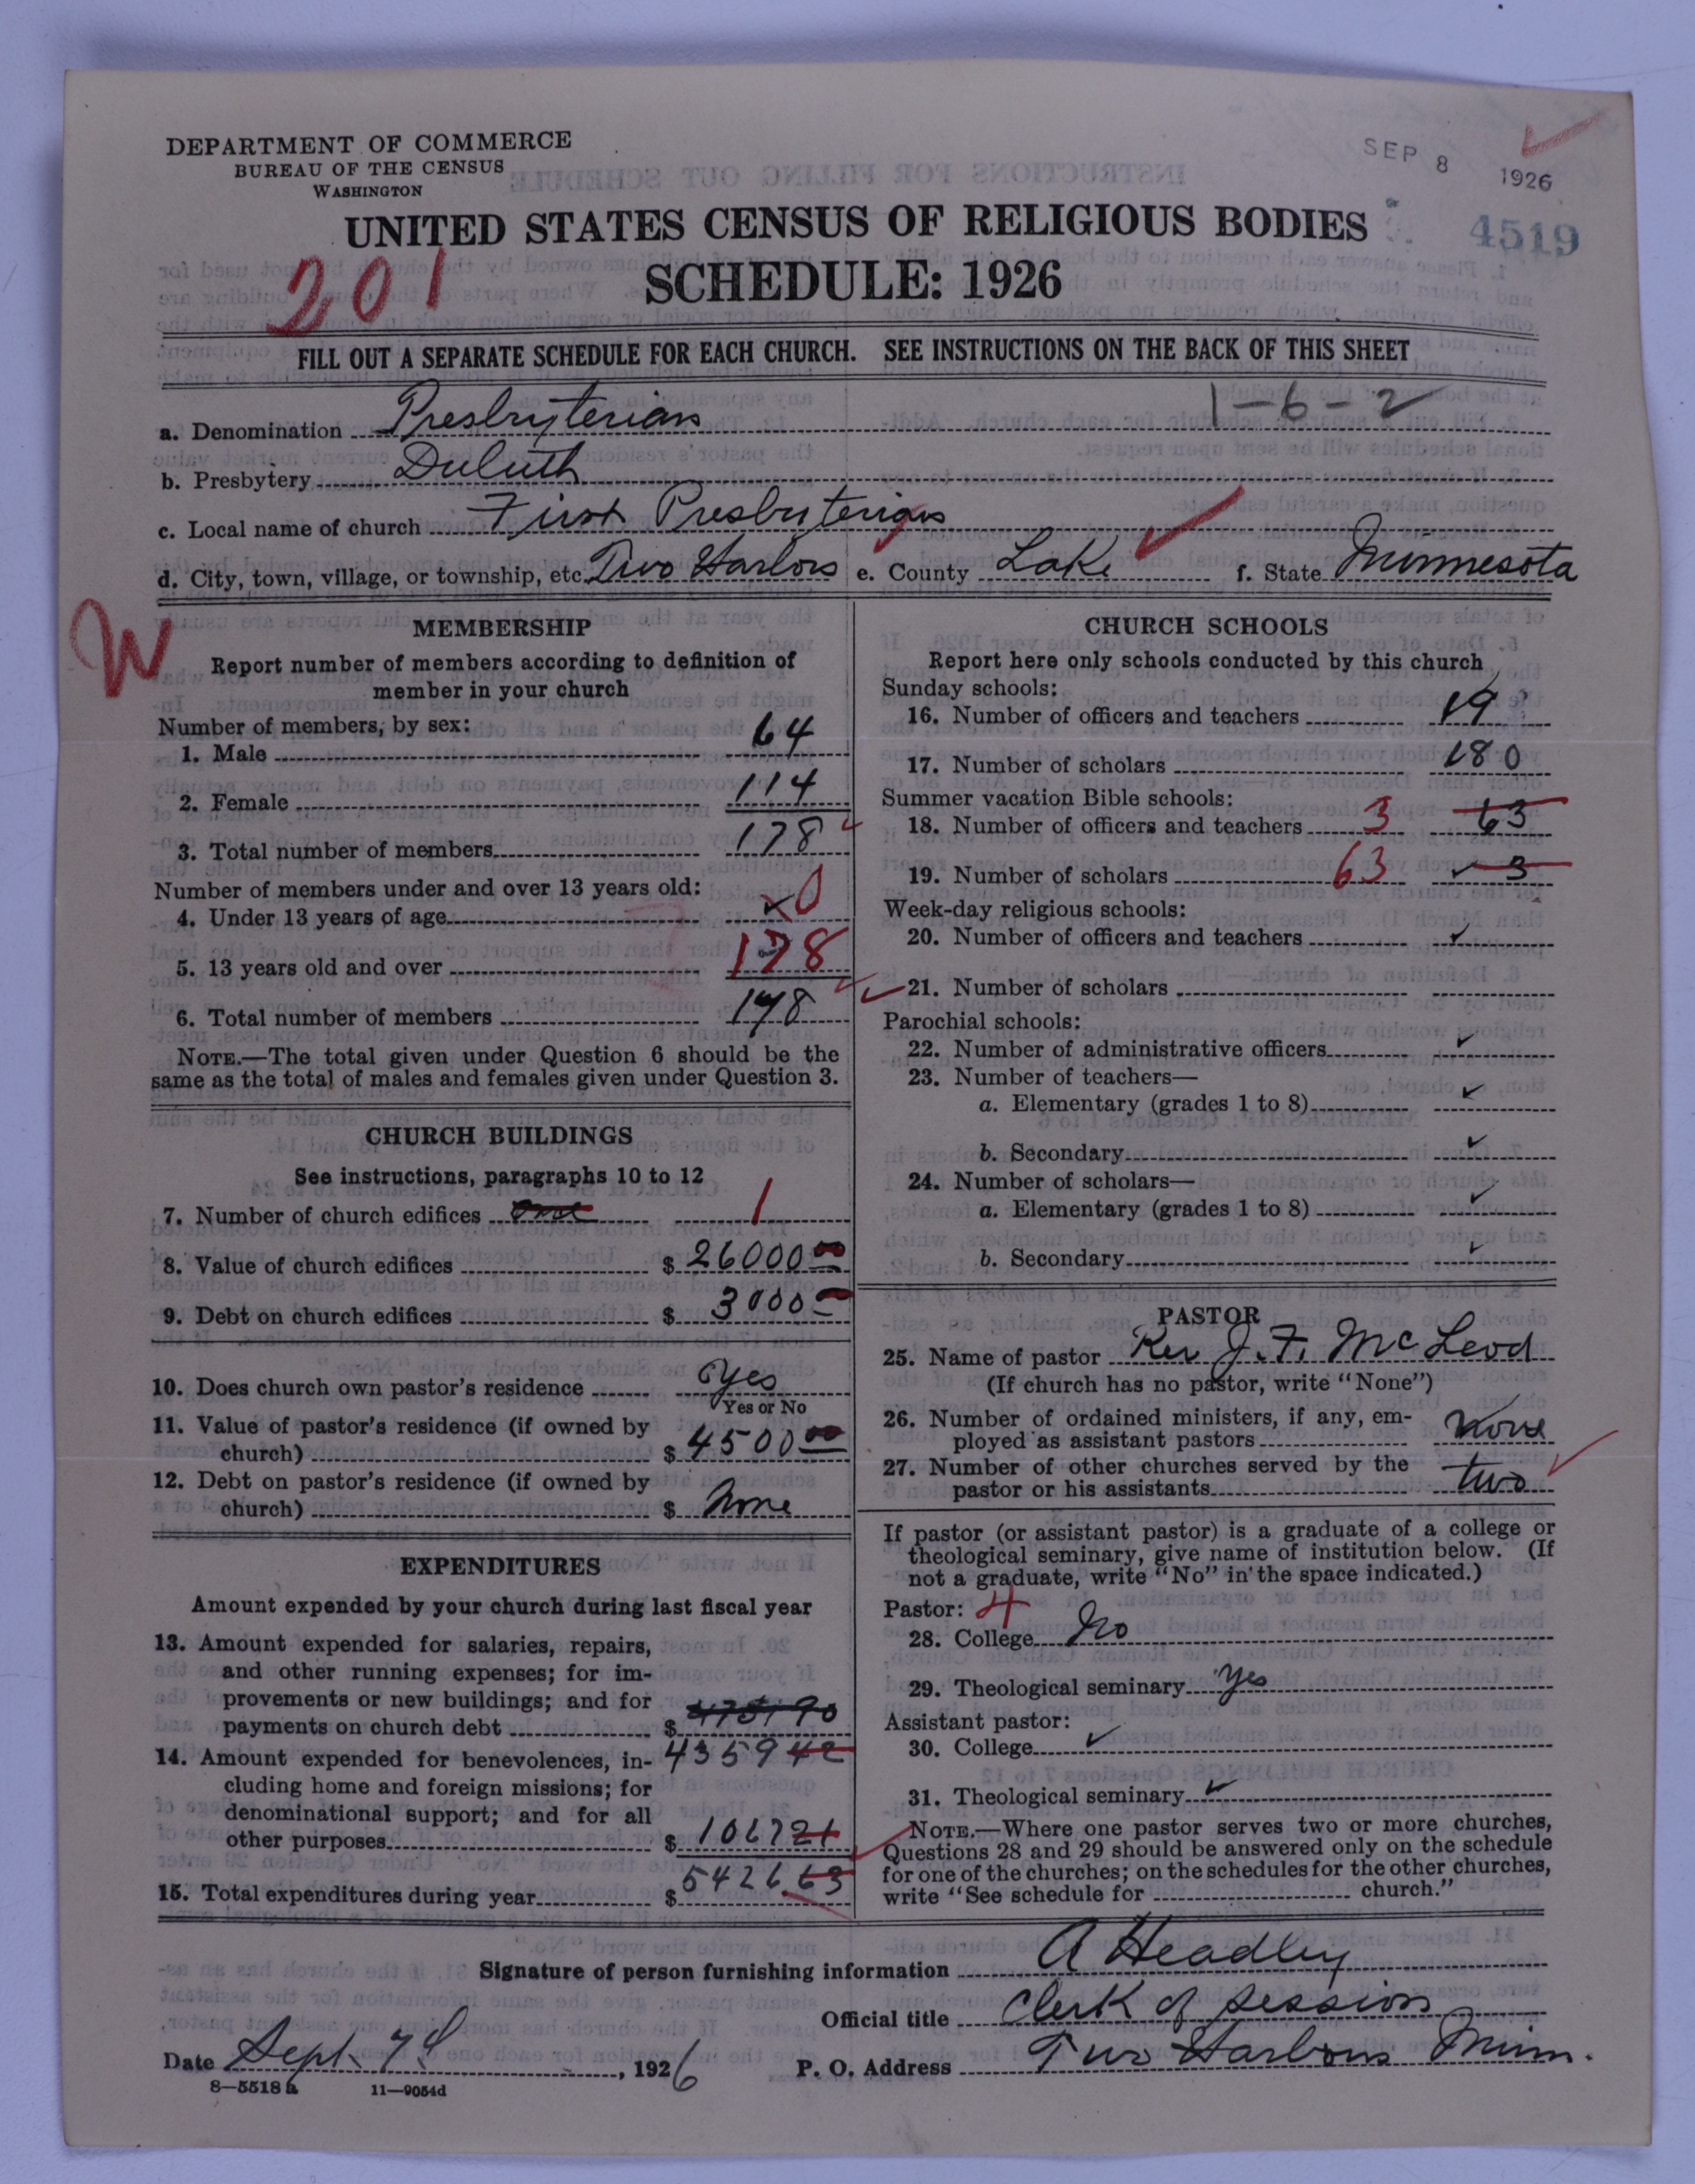 DEPARTMENT OF COMMERCE
BUREAU OF THE CENSUS
WASHINGTON
SEP 8 1926
4519
UNITED STATES CENSUS OF RELIGIOUS BODIES
SCHEDULE: 1926
201
FILL OUT A SEPARATE SCHEDULE FOR EACH CHURCH. SEE INSTRUCTIONS ON THE BACK OF THIS SHEET
1-6-2
a. Denomination Presbyterian
b. Presbytery Duluth
c. Local name of church First Presbyterian
d. City, town, village, or township, etc. Two Harbors e. County Lake f. State Minnesota
W
MEMBERSHIP
Report number of members according to definition of
member in your church
Number of members, by sex:
1. Male 64
2. Female 114
3. Total number of members 178
Number of members under and over 13 years old:
4. Under 13 years of age 0
5. 13 years old and over 178
6. Total number of members 178
NOTE.—The total given under Question 6 should be the
same as the total of males and females given under Question 3.
CHURCH BUILDINGS
See instructions, paragraphs 10 to 12
7. Number of church edifices one 1
8. Value of church edifices $ 26000 00
9. Debt on church edifices $ 3000
10. Does church own pastor's residence Yes
Yes or No
11. Value of pastor's residence (if owned by
church) $ 4500 00
12. Debt on pastor's residence (if owned by
church) $ None
EXPENDITURES
Amount expended by your church during last fiscal year
13. Amount expended for salaries, repairs,
and other running expenses; for im-
provements or new buildings; and for
payments on church debt $
14. Amount expended for benevolences, in- 4359 42
cluding home and foreign missions; for
denominational support; and for all
other purposes $ 1067 21
15. Total expenditures during year $ 5426.63
CHURCH SCHOOLS
Report here only schools conducted by this church
Sunday schools:
16. Number of officers and teachers 19
17. Number of scholars 180
Summer vacation Bible schools:
18. Number of officers and teachers 3 63
19. Number of scholars 63 3
Week-day religious schools:
20. Number of officers and teachers
21. Number of scholars
Parochial schools:
22. Number of administrative officers
23. Number of teachers—
a. Elementary (grades 1 to 8)
b. Secondary
24. Number of scholars—
a. Elementary (grades 1 to 8)
b. Secondary
PASTOR
25. Name of pastor Rev J. F. McLeod
(If church has no pastor, write "None")
26. Number of ordained ministers, if any, em-
ployed as assistant pastors None
27. Number of other churches served by the
pastor or his assistants two
If pastor (or assistant pastor) is a graduate of a college or
theological seminary, give name of institution below. (If
not a graduate, write "No" in the space indicated.)
Pastor: 4
28. College No
29. Theological seminary Yes
Assistant pastor:
30. College
31. Theological seminary
NOTE.—Where one pastor serves two or more churches,
Questions 28 and 29 should be answered only on the schedule
for one of the churches; on the schedules for the other churches,
write "See schedule for church."
Signature of person furnishing information A Headley
Official title Clerk of Session
Date Sept 7th, 1926 P. O. Address Two Harbors Minn.
8—5518 a 11—9054d